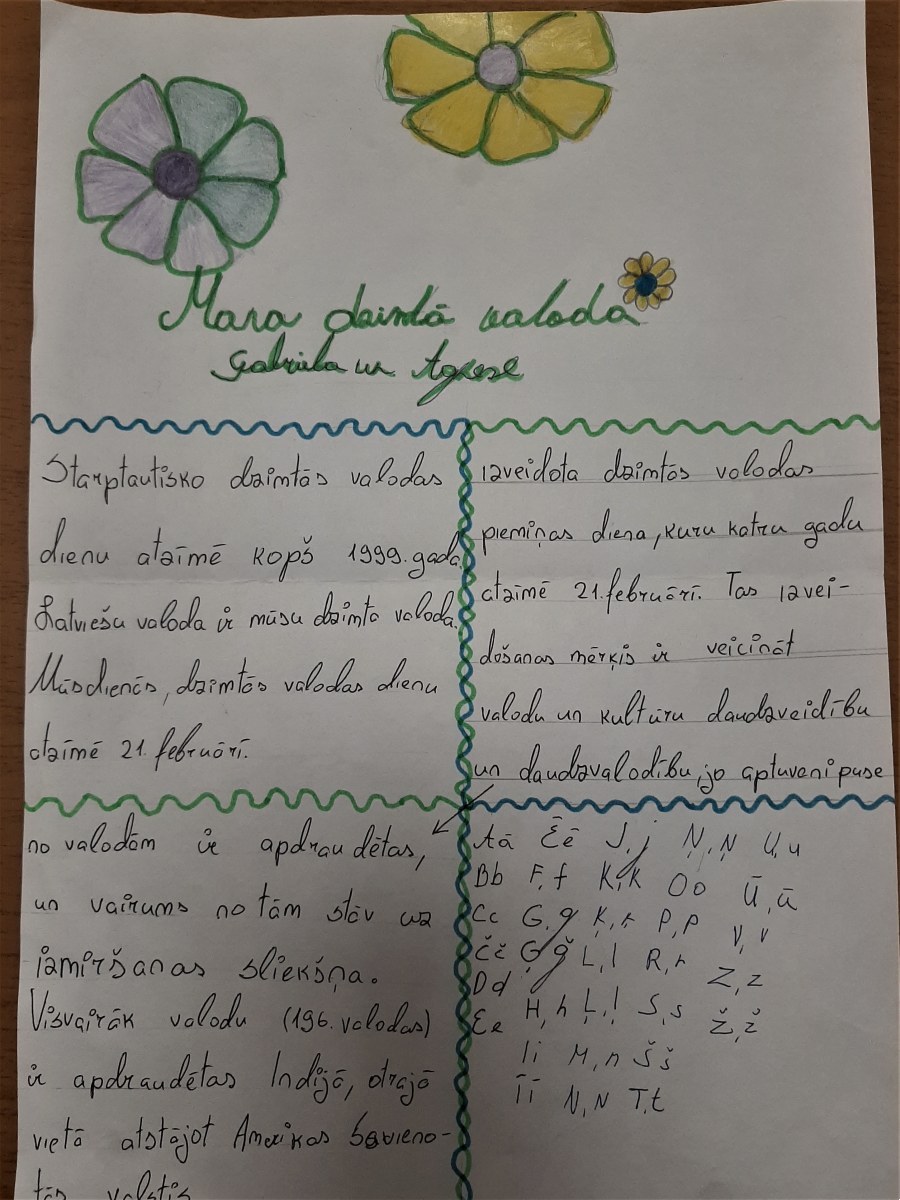 Mana dzimtā valoda
Gabriela un Agnese
Starptautisko dzimtās valodas
dienu atzīmē kopš 1999.gada.
Latviešu valoda ir mūsu dzimtā valoda.
Mūsdienās, dzimtās valodas dienu
atzīmē 21.februārī.
izveidota dzimtās valodas
piemiņas diena, kuru katru gadu
atzīmē 21.februārī. Tas izvei-
došanas mērķis ir veicināt
valodu un kultūru daudzveidību
un daudzvalodību, jo aptuveni puse
no valodām ir apdraudētas,
un vairums no tām stāv uz
izmiršanas sliekšņa.
Visvairāk valodu (196.valodas)
ir apdraudētas Indijā, otrajā
vietā atstājot Amerikas Savieno-
tās valstis
Aā Ēē J,j Ņ,Ņ U,u
Bb F,f K,k Oo Ū,ū
Cc G,g Ķ,ķ P,p V,v
Čč Ģģ L,l R,r Z,z
Dd H,h Ļ,ļ S,s Ž,ž
Ee Ii M,n Šš
Īī N,N T,t